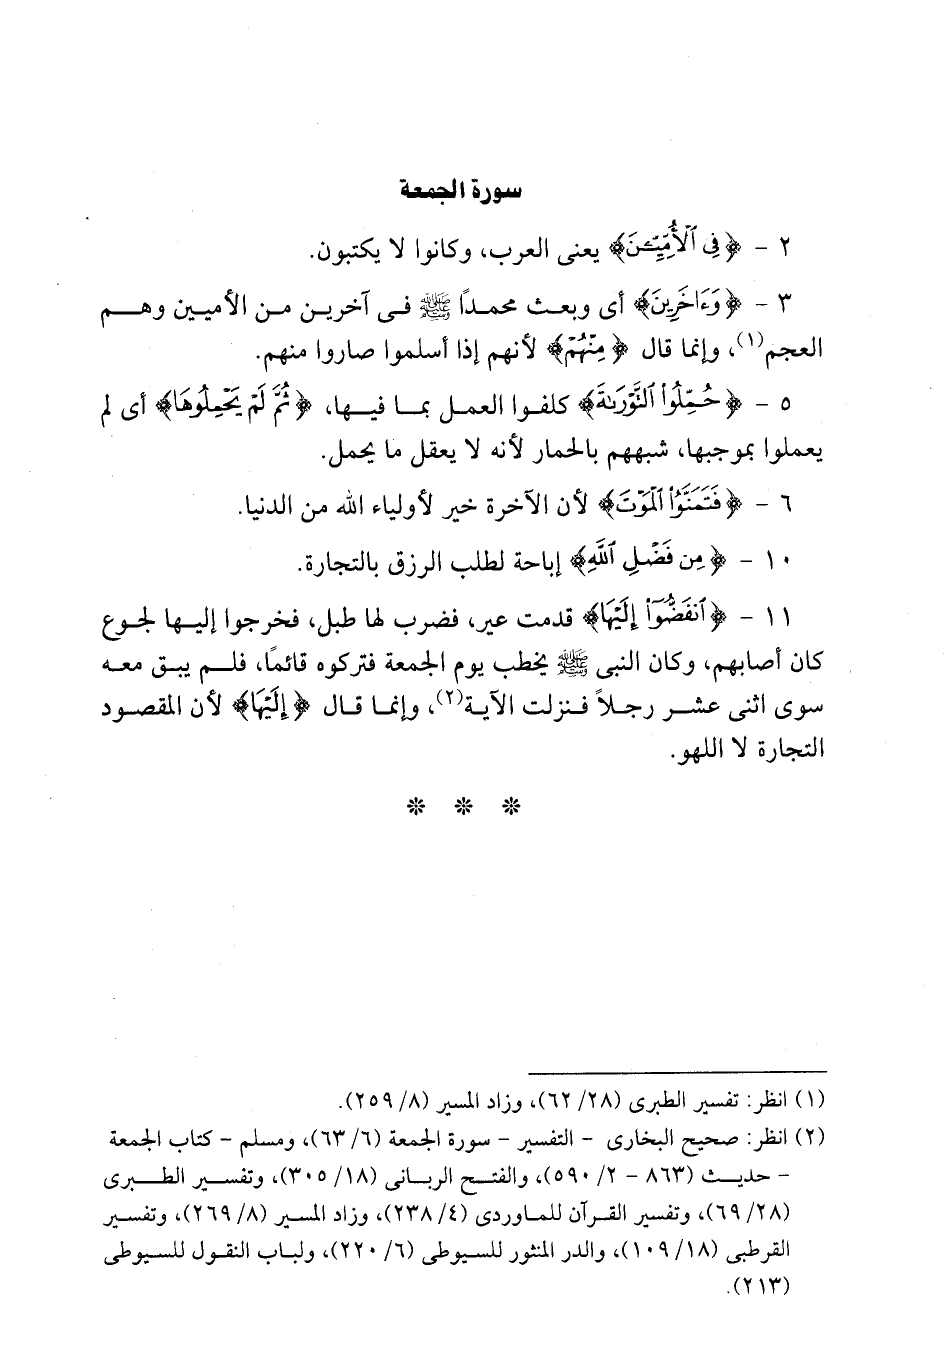 سورة الجمعة
٢ - ﴿فِي ٱلۡأُمِّيِّـۧنَ﴾ يعنى العرب، وكانوا لا يكتبون.
٣ - ﴿وَءَاخَرِينَ﴾ أى وبعث محمداً ﷺ فى آخرين من الأميين وهم
العجم(١)، وإنما قال ﴿مِنۡهُمۡ﴾ لأنهم إذا أسلموا صاروا منهم.
٥ - ﴿حُمِّلُواْ ٱلتَّوۡرَىٰةَ﴾ كلفوا العمل بما فيها، ﴿ثُمَّ لَمۡ يَحۡمِلُوهَا﴾ أى لم
يعملوا بموجبها، شبههم بالحمار لأنه لا يعقل ما يحمل.
٦ - ﴿فَتَمَنَّوُاْ ٱلۡمَوۡتَ﴾ لأن الآخرة خير لأولياء الله من الدنيا.
١٠ - ﴿مِن فَضۡلِ ٱللَّهِ﴾ إباحة لطلب الرزق بالتجارة.
١١ - ﴿ٱنفَضُّوٓاْ إِلَيۡهَا﴾ قدمت عير، فضرب لها طبل، فخرجوا إليها لجوع
كان أصابهم، وكان النبى ﷺ يخطب يوم الجمعة فتركوه قائمًا، فلم يبق معه
سوى اثنى عشر رجلاً فنزلت الآية(٢)، وإنما قال ﴿إِلَيۡهَا﴾ لأن المقصود
التجارة لا اللهو.
* * *
(١) انظر: تفسير الطبرى (٢٨/ ٦٢)، وزاد المسير (٨/ ٢٥٩).
(٢) انظر: صحيح البخارى - التفسير - سورة الجمعة (٦/ ٦٣)، ومسلم - كتاب الجمعة
- حديث (٨٦٣ - ٢/ ٥٩٠)، والفتح الربانى (١٨/ ٣٠٥)، وتفسير الطبرى
(٢٨/ ٦٩)، وتفسير القرآن للماوردى (٤/ ٢٣٨)، وزاد المسير (٨/ ٢٦٩)، وتفسير
القرطبى (١٨/ ١٠٩)، والدر المنثور للسيوطى (٦/ ٢٢٠)، ولباب النقول للسيوطى
(٢١٣).